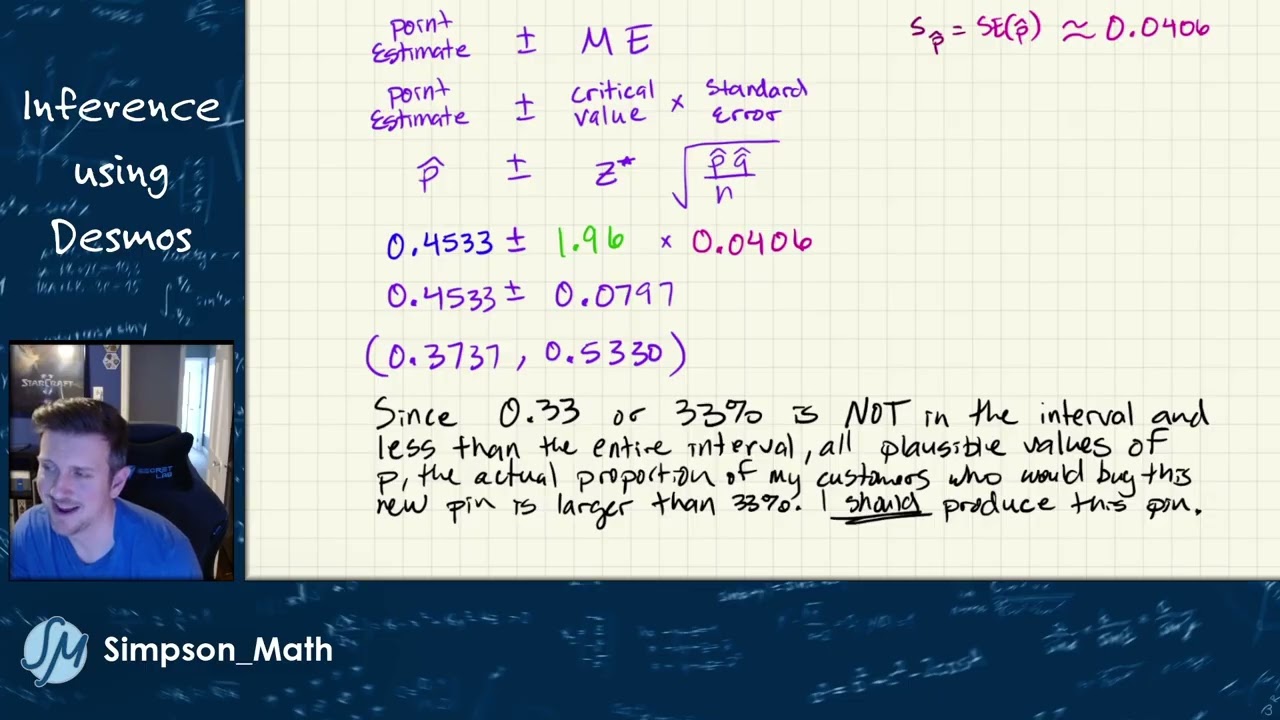 Inference
using
Desmos
point
Estimate ± ME
point
Estimate ± critical
value × Standard
Error
p̂ ± z* √(p̂q̂/n)
0.4533 ± 1.96 × 0.0406
0.4533 ± 0.0797
(0.3737, 0.5330)
Since 0.33 or 33% is NOT in the interval and
less than the entire interval, all plausible values of
p, the actual proportion of my customers who would buy this
new pin is larger than 33%. I should produce this pin.
S_p̂ = SE(p̂) ≈ 0.0406
STARCRAFT
SECRET
LAB
SM
Simpson_Math